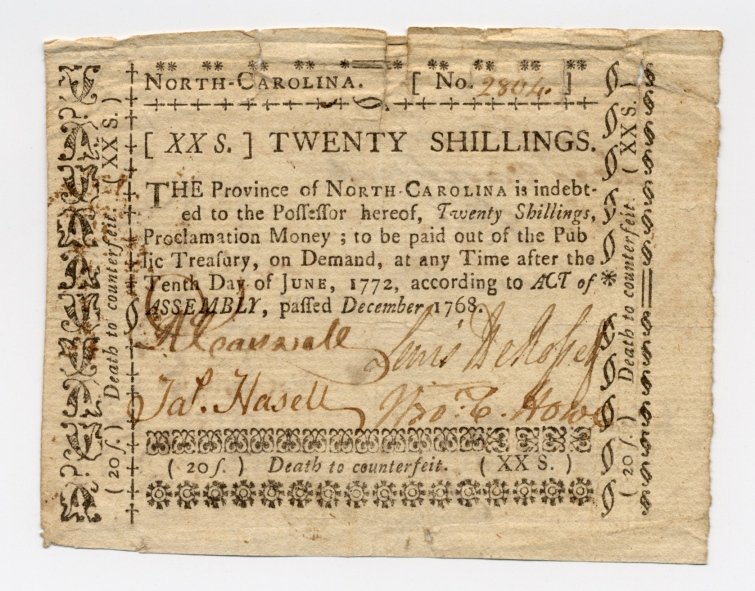 NORTH-CAROLINA. [ No. 2804. ]
[ XX S. ] TWENTY SHILLINGS.
THE Province of NORTH-CAROLINA is indebt-
ed to the Poſſeſſor hereof, Twenty Shillings,
Proclamation Money ; to be paid out of the Pub
lic Treaſury, on Demand, at any Time after the
Tenth Day of JUNE, 1772, according to ACT of
ASSEMBLY, paſſed December 1768.
R Caswell Lewis DeRosset
Jas. Hasell Robt. Howe
( 20 ſ. ) Death to counterfeit. ( XX S. )
( 20 ſ. ) Death to counterfeit. ( XX S. )
( 20 ſ. ) Death to counterfeit. ( XX S. )